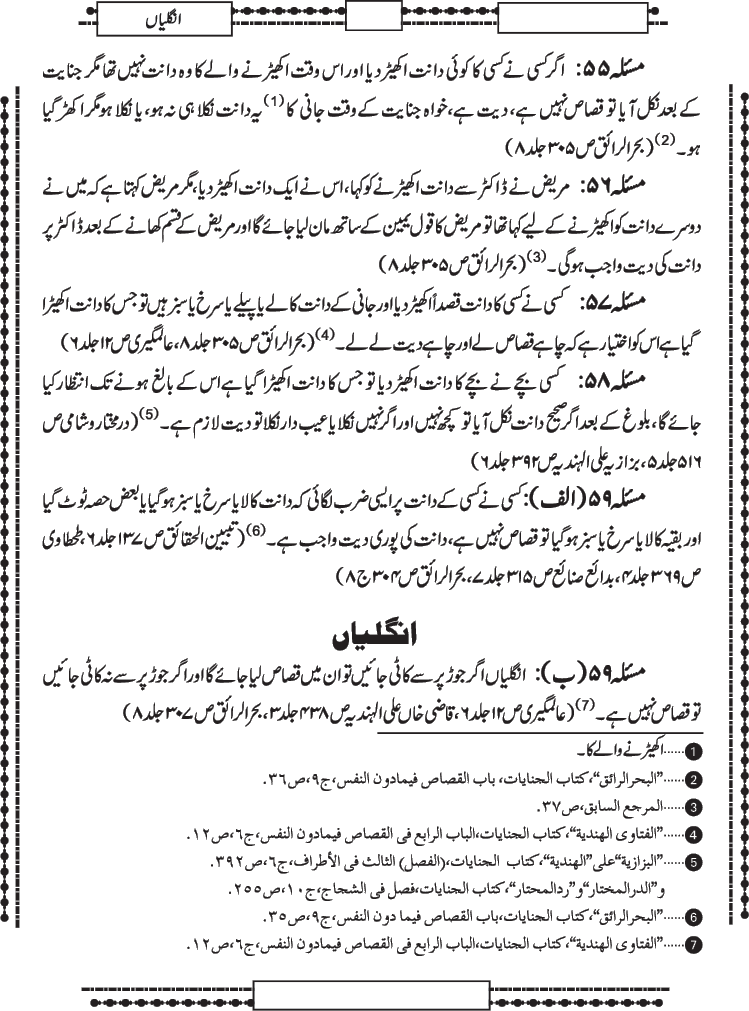 انگلیاں
مسئلہ ۵۵: اگر کسی نے کسی کا کوئی دانت اکھیڑ دیا اور اس وقت اکھیڑنے والے کا وہ دانت نہیں تھا مگر جنایت
کے بعد نکل آیا تو قصاص نہیں ہے، دیت ہے، خواہ جنایت کے وقت جانی کا(1) یہ دانت نکلا ہی نہ ہو، یا نکلا ہو مگر اکھڑ گیا
ہو۔(2) (بحرالرائق ص ۳۰۵ جلد ۸)
مسئلہ ۵۶: مریض نے ڈاکٹر سے دانت اکھیڑنے کو کہا، اس نے ایک دانت اکھیڑ دیا، مگر مریض کہتا ہے کہ میں نے
دوسرے دانت کو اکھیڑنے کے لیے کہا تھا تو مریض کا قول یمین کے ساتھ مان لیا جائے گا اور مریض کے قسم کھانے کے بعد ڈاکٹر پر
دانت کی دیت واجب ہوگی۔(3) (بحرالرائق ص ۳۰۵ جلد ۸)
مسئلہ ۵۷: کسی نے کسی کا دانت قصداً اکھیڑ دیا اور جانی کے دانت کالے یا پیلے یا سرخ یا سبز ہیں تو جس کا دانت اکھیڑا
گیا ہے اس کو اختیار ہے کہ چاہے قصاص لے اور چاہے دیت لے لے۔(4) (بحرالرائق ص ۳۰۵ جلد ۸، عالمگیری ص ۱۲ جلد ۶)
مسئلہ ۵۸: کسی بچے نے بچے کا دانت اکھیڑ دیا تو جس کا دانت اکھیڑا گیا ہے اس کے بالغ ہونے تک انتظار کیا
جائے گا، بلوغ کے بعد اگر صحیح دانت نکل آیا تو کچھ نہیں اور اگر نہیں نکلا یا عیب دار نکلا تو دیت لازم ہے۔(5) (درمختار و شامی ص
۵۱۶ جلد ۵، بزازیہ علی الہندیہ ص ۳۹۲ جلد ۶)
مسئلہ ۵۹ (الف): کسی نے کسی کے دانت پر ایسی ضرب لگائی کہ دانت کالا یا سرخ یا سبز ہو گیا یا بعض حصہ ٹوٹ گیا
اور بقیہ کالا یا سرخ یا سبز ہو گیا تو قصاص نہیں ہے، دانت کی پوری دیت واجب ہے۔(6) (تبیین الحقائق ص ۱۳۷ جلد ۶، طحطاوی
ص ۳۶۹ جلد ۴، بدائع صنائع ص ۳۱۵ جلد ۷، بحرالرائق ص ۳۰۴ ج ۸)
انگلیاں
مسئلہ ۵۹ (ب): انگلیاں اگر جوڑ پر سے کاٹی جائیں تو ان میں قصاص لیا جائے گا اور اگر جوڑ پر سے نہ کاٹی جائیں
تو قصاص نہیں ہے۔(7) (عالمگیری ص ۱۲ جلد ۶، قاضی خاں علی الہندیہ ص ۴۳۸ جلد ۳، بحرالرائق ص ۳۰۷ جلد ۸)
1 ......اکھیڑنے والے کا۔
2 ......"البحرالرائق"، کتاب الجنایات، باب القصاص فیمادون النفس، ج۹، ص۳۶.
3 ......المرجع السابق، ص۳۷.
4 ......"الفتاوی الھندیة"، کتاب الجنایات، الباب الرابع فی القصاص فیمادون النفس، ج۶، ص۱۲.
5 ......"البزازیة" علی "الھندیة"، کتاب الجنایات، (الفصل) الثالث فی الأطراف، ج۶، ص۳۹۲.
و"الدرالمختار" و"ردالمحتار"، کتاب الجنایات، فصل فی الشجاج، ج۱۰، ص۲۵۵.
6 ......"البحرالرائق"، کتاب الجنایات، باب القصاص فیما دون النفس، ج۹، ص۳۵.
7 ......"الفتاوی الھندیة"، کتاب الجنایات، الباب الرابع فی القصاص فیمادون النفس، ج۶، ص۱۲.